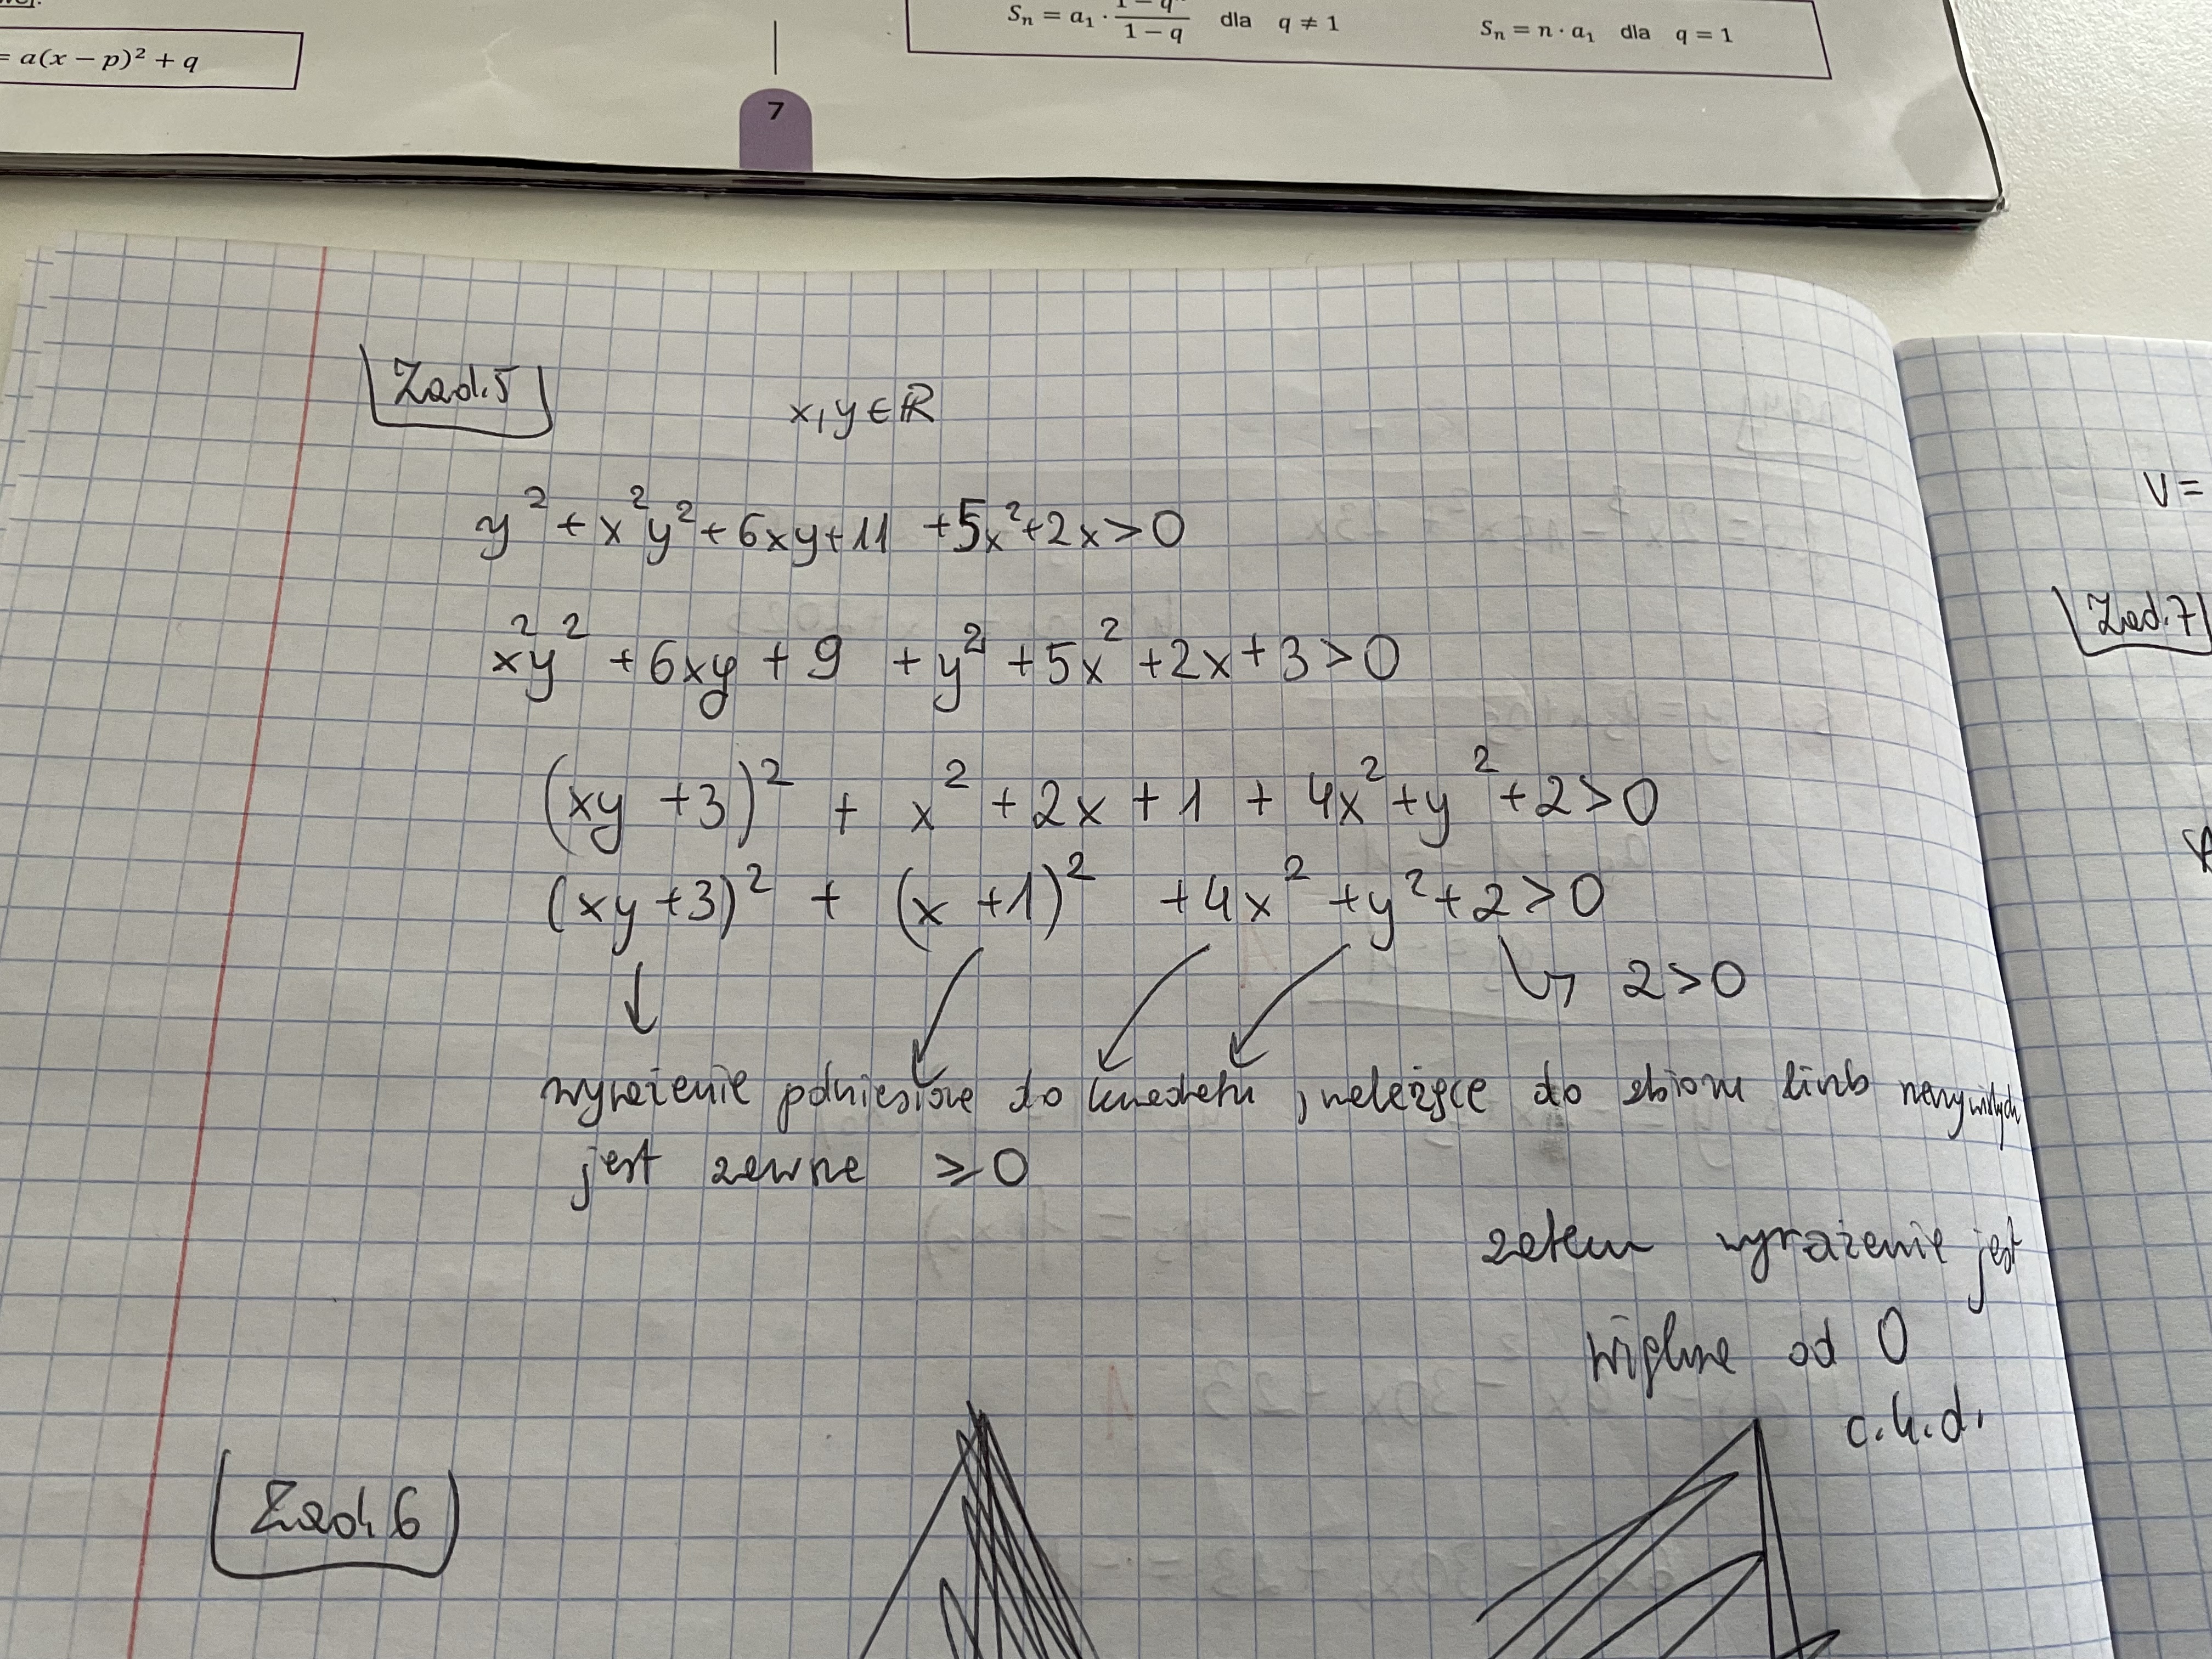 = a(x − p)² + q
Sₙ = a₁ · (1 − q)/(1 − q) dla q ≠ 1
Sₙ = n · a₁ dla q = 1
7
Zad.5
x, y ∈ ℝ
y² + x²y² + 6xy + 11 + 5x² + 2x > 0
x²y² + 6xy + 9 + y² + 5x² + 2x + 3 > 0
(xy + 3)² + x² + 2x + 1 + 4x² + y² + 2 > 0
(xy + 3)² + (x + 1)² + 4x² + y² + 2 > 0
↓ ↙ ↙ ↙ ↳ 2 > 0
wyrażenie podniesione do kwadratu, należące do zbioru liczb rzeczywistych
jest zawsze ≥ 0
zatem wyrażenie jest
większe od 0
c.k.d.
Zad. 6
V =
Zad. 7